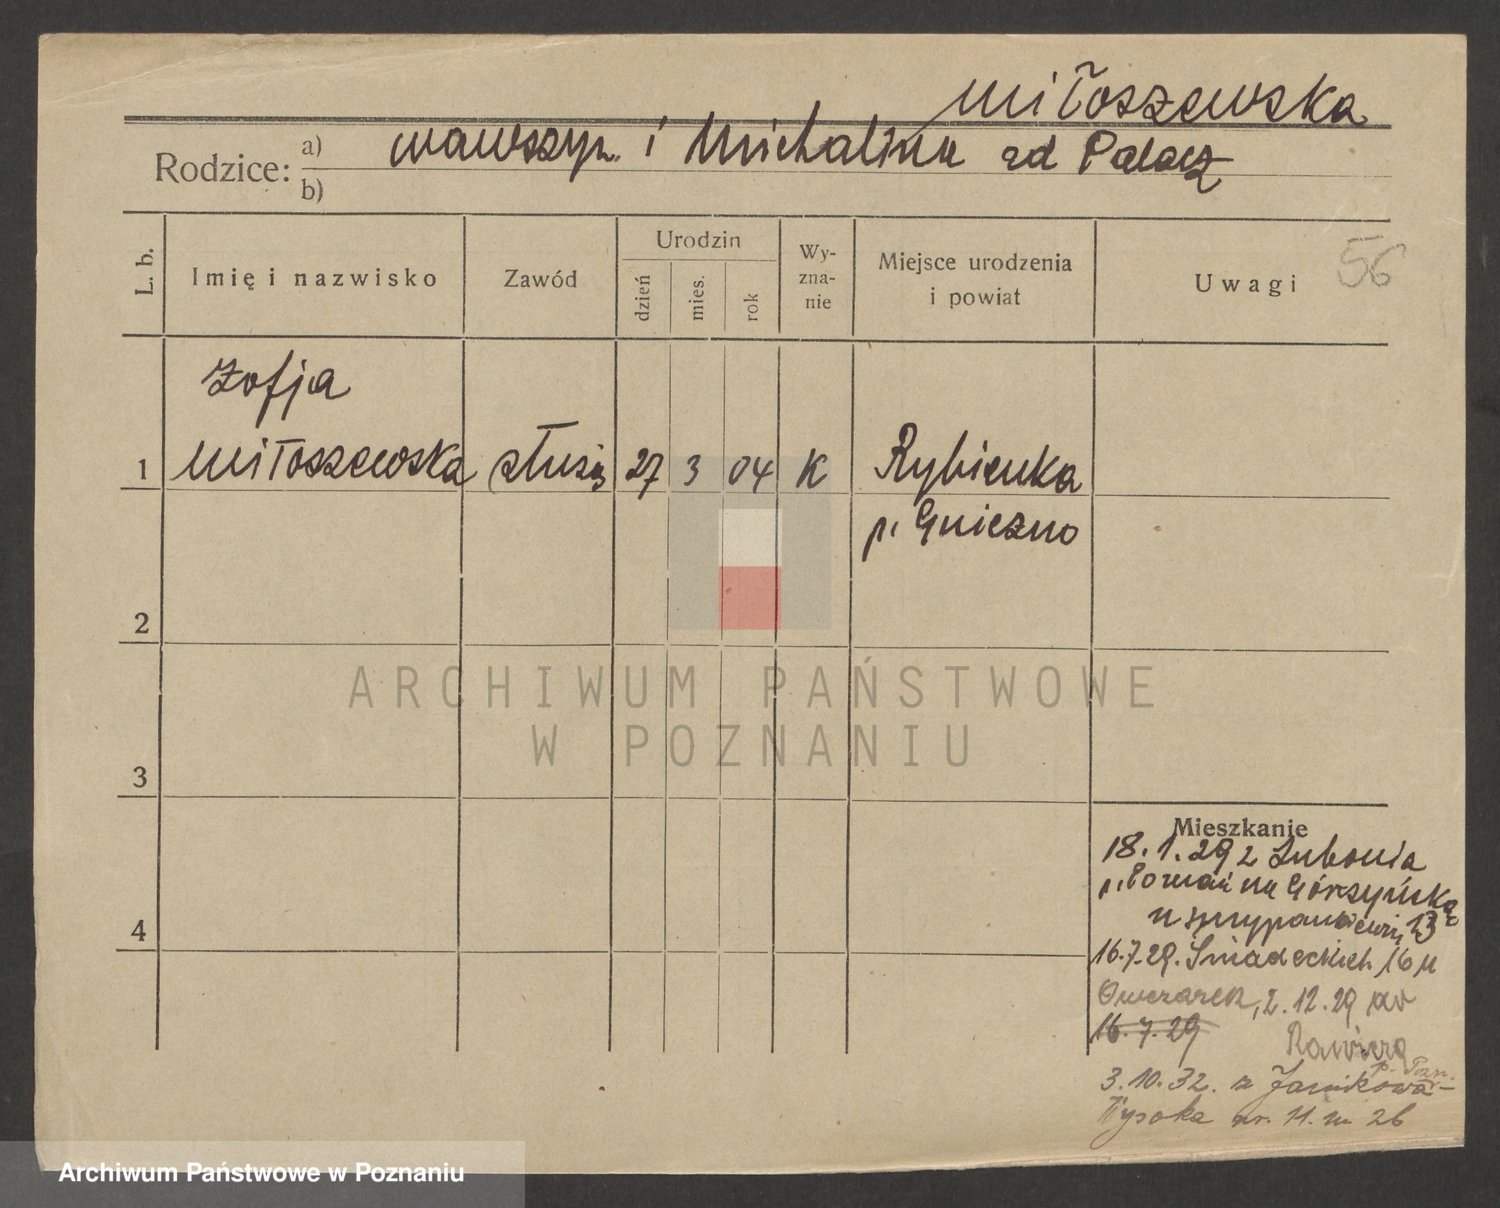 Miłoszewska
Rodzice: a) Wawrzyn i Michalina zd Palacz
b)
L. b.
Imię i nazwisko
Zawód
Urodzin
dzień
mies.
rok
Wy-
zna-
nie
Miejsce urodzenia
i powiat
Uwagi
56
Zofja
1 Miłoszewska służą 27 3 04 K Rybienka
p. Gniezno
2
3
4
ARCHIWUM PAŃSTWOWE
W POZNANIU
Mieszkanie
18.1.29 z Lubonia
p. Poznań na Górczyńską
u 13
16.7.29. Śniadeckich 16 u
Owczarek, 2.12.29 do
16.7.29
Rawicza
3.10.32. z Janikowa
p. Pozn.
Wysoka nr. 11. m 26
Archiwum Państwowe w Poznaniu